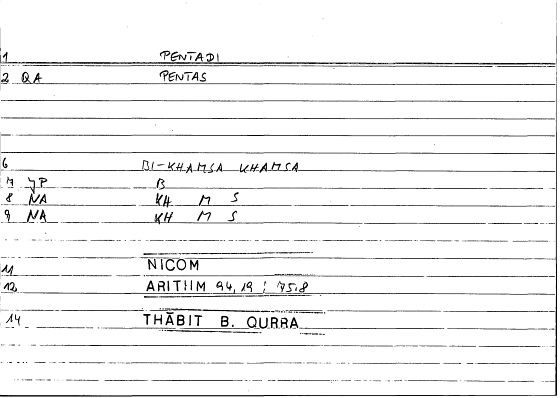 1 PENTADI
2 QA PENTAS
6 BI-KHAMSA KHAMSA
7 JP B
8 NA KH M S
9 NA KH M S
11 NICOM
12 ARITHM 94,19 ; 75.8
14 THĀBIT B. QURRA